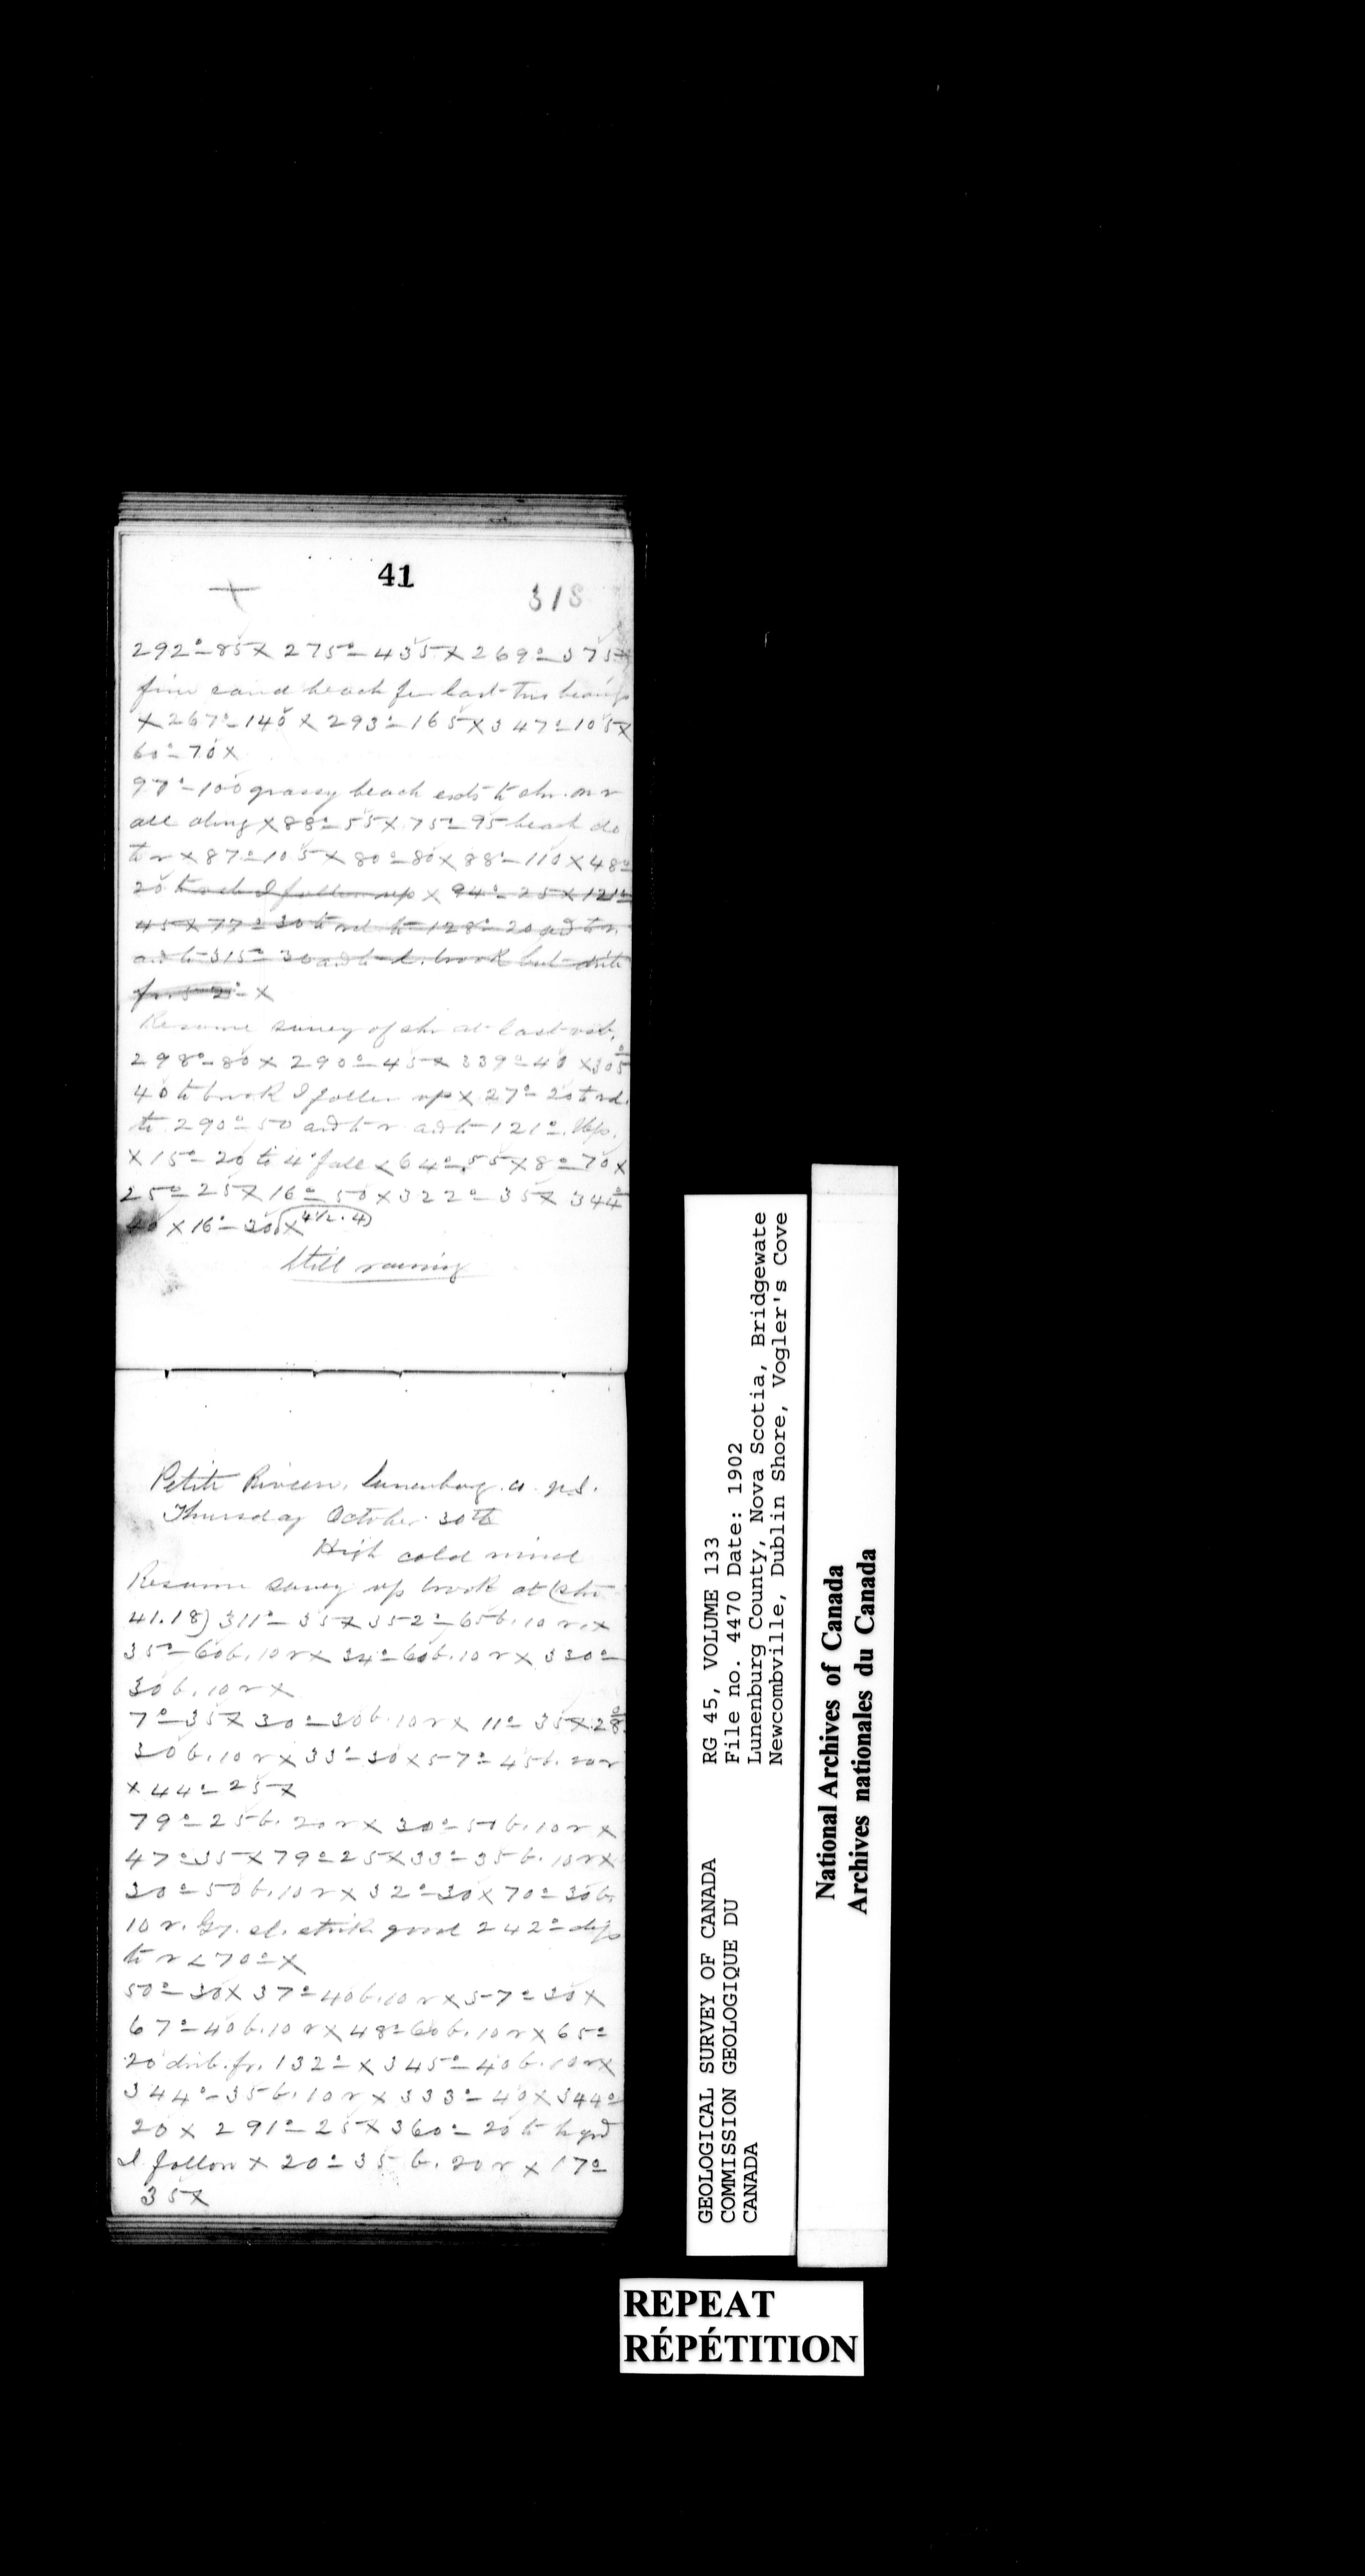 41
318
292° 85 X 275° 435 X 269° 375 X
fine sand beach for last two bearings
X 267° 140 X 293° 165 X 347° 105 X
60° 70 X
97° 100 grassy beach ends to shr. on r
all along X 88° 55 X 75° 95 beach do
to r X 87° 105 X 80° 80 X 88° 110 X 48°
20 to rd I follow up X 94° 25 X 121°
45 X 77° 30 to rd to 128° 20 and to r.
and to 315° 30 and to l. brook but
X
Resume survey of shr at last
298° 80 X 290° 45 X 339° 40 X 305°
40 to brook I follow up X 27° 20 to rd.
to 290° 50 and to r and to 121°. Up.
X 15° 20 to 4' fall X 64° 55 X 8° 70 X
25° 25 X 16° 50 X 322° 35 X 344°
40 X 16° 30 X (41/2.4)
Still raining
Petite Riviere, Lunenburg Co. N.S.
Thursday October 30th
High cold wind
Resume survey up brook at (shr
41.18) 311° 35 X 352° 65 b. 10 r. X
35° 60 b. 10 r X 34° 60 b. 10 r X 330°
30 b. 10 r X
7° 35 X 30° 30 b. 10 r X 11° 35 X 28°
30 b. 10 r X 33° 30 X 57° 45 b. 20 r
X 44° 25 X
79° 25 b. 20 r X 30° 50 b. 10 r X
47° 35 X 79° 25 X 33° 35 b. 10 r X
30° 50 b. 10 r X 32° 30 X 70° 30 b.
10 r. Gy. sl. strike good 242° dips
to r < 70° X
50° 30 X 37° 40 b. 10 r X 57° 30 X
67° 40 b. 10 r X 48° 60 b. 10 r X 65°
20 fr. 132° X 345° 40 b. 10 r X
344° 35 b. 10 r X 333° 40 X 344°
20 X 291° 25 X 360° 20 to
I follow X 20° 35 b. 20 r X 17°
35 X
GEOLOGICAL SURVEY OF CANADA
COMMISSION GEOLOGIQUE DU
CANADA
RG 45, VOLUME 133
File no. 4470 Date: 1902
Lunenburg County, Nova Scotia, Bridgewate
Newcombville, Dublin Shore, Vogler's Cove
National Archives of Canada
Archives nationales du Canada
REPEAT
RÉPÉTITION